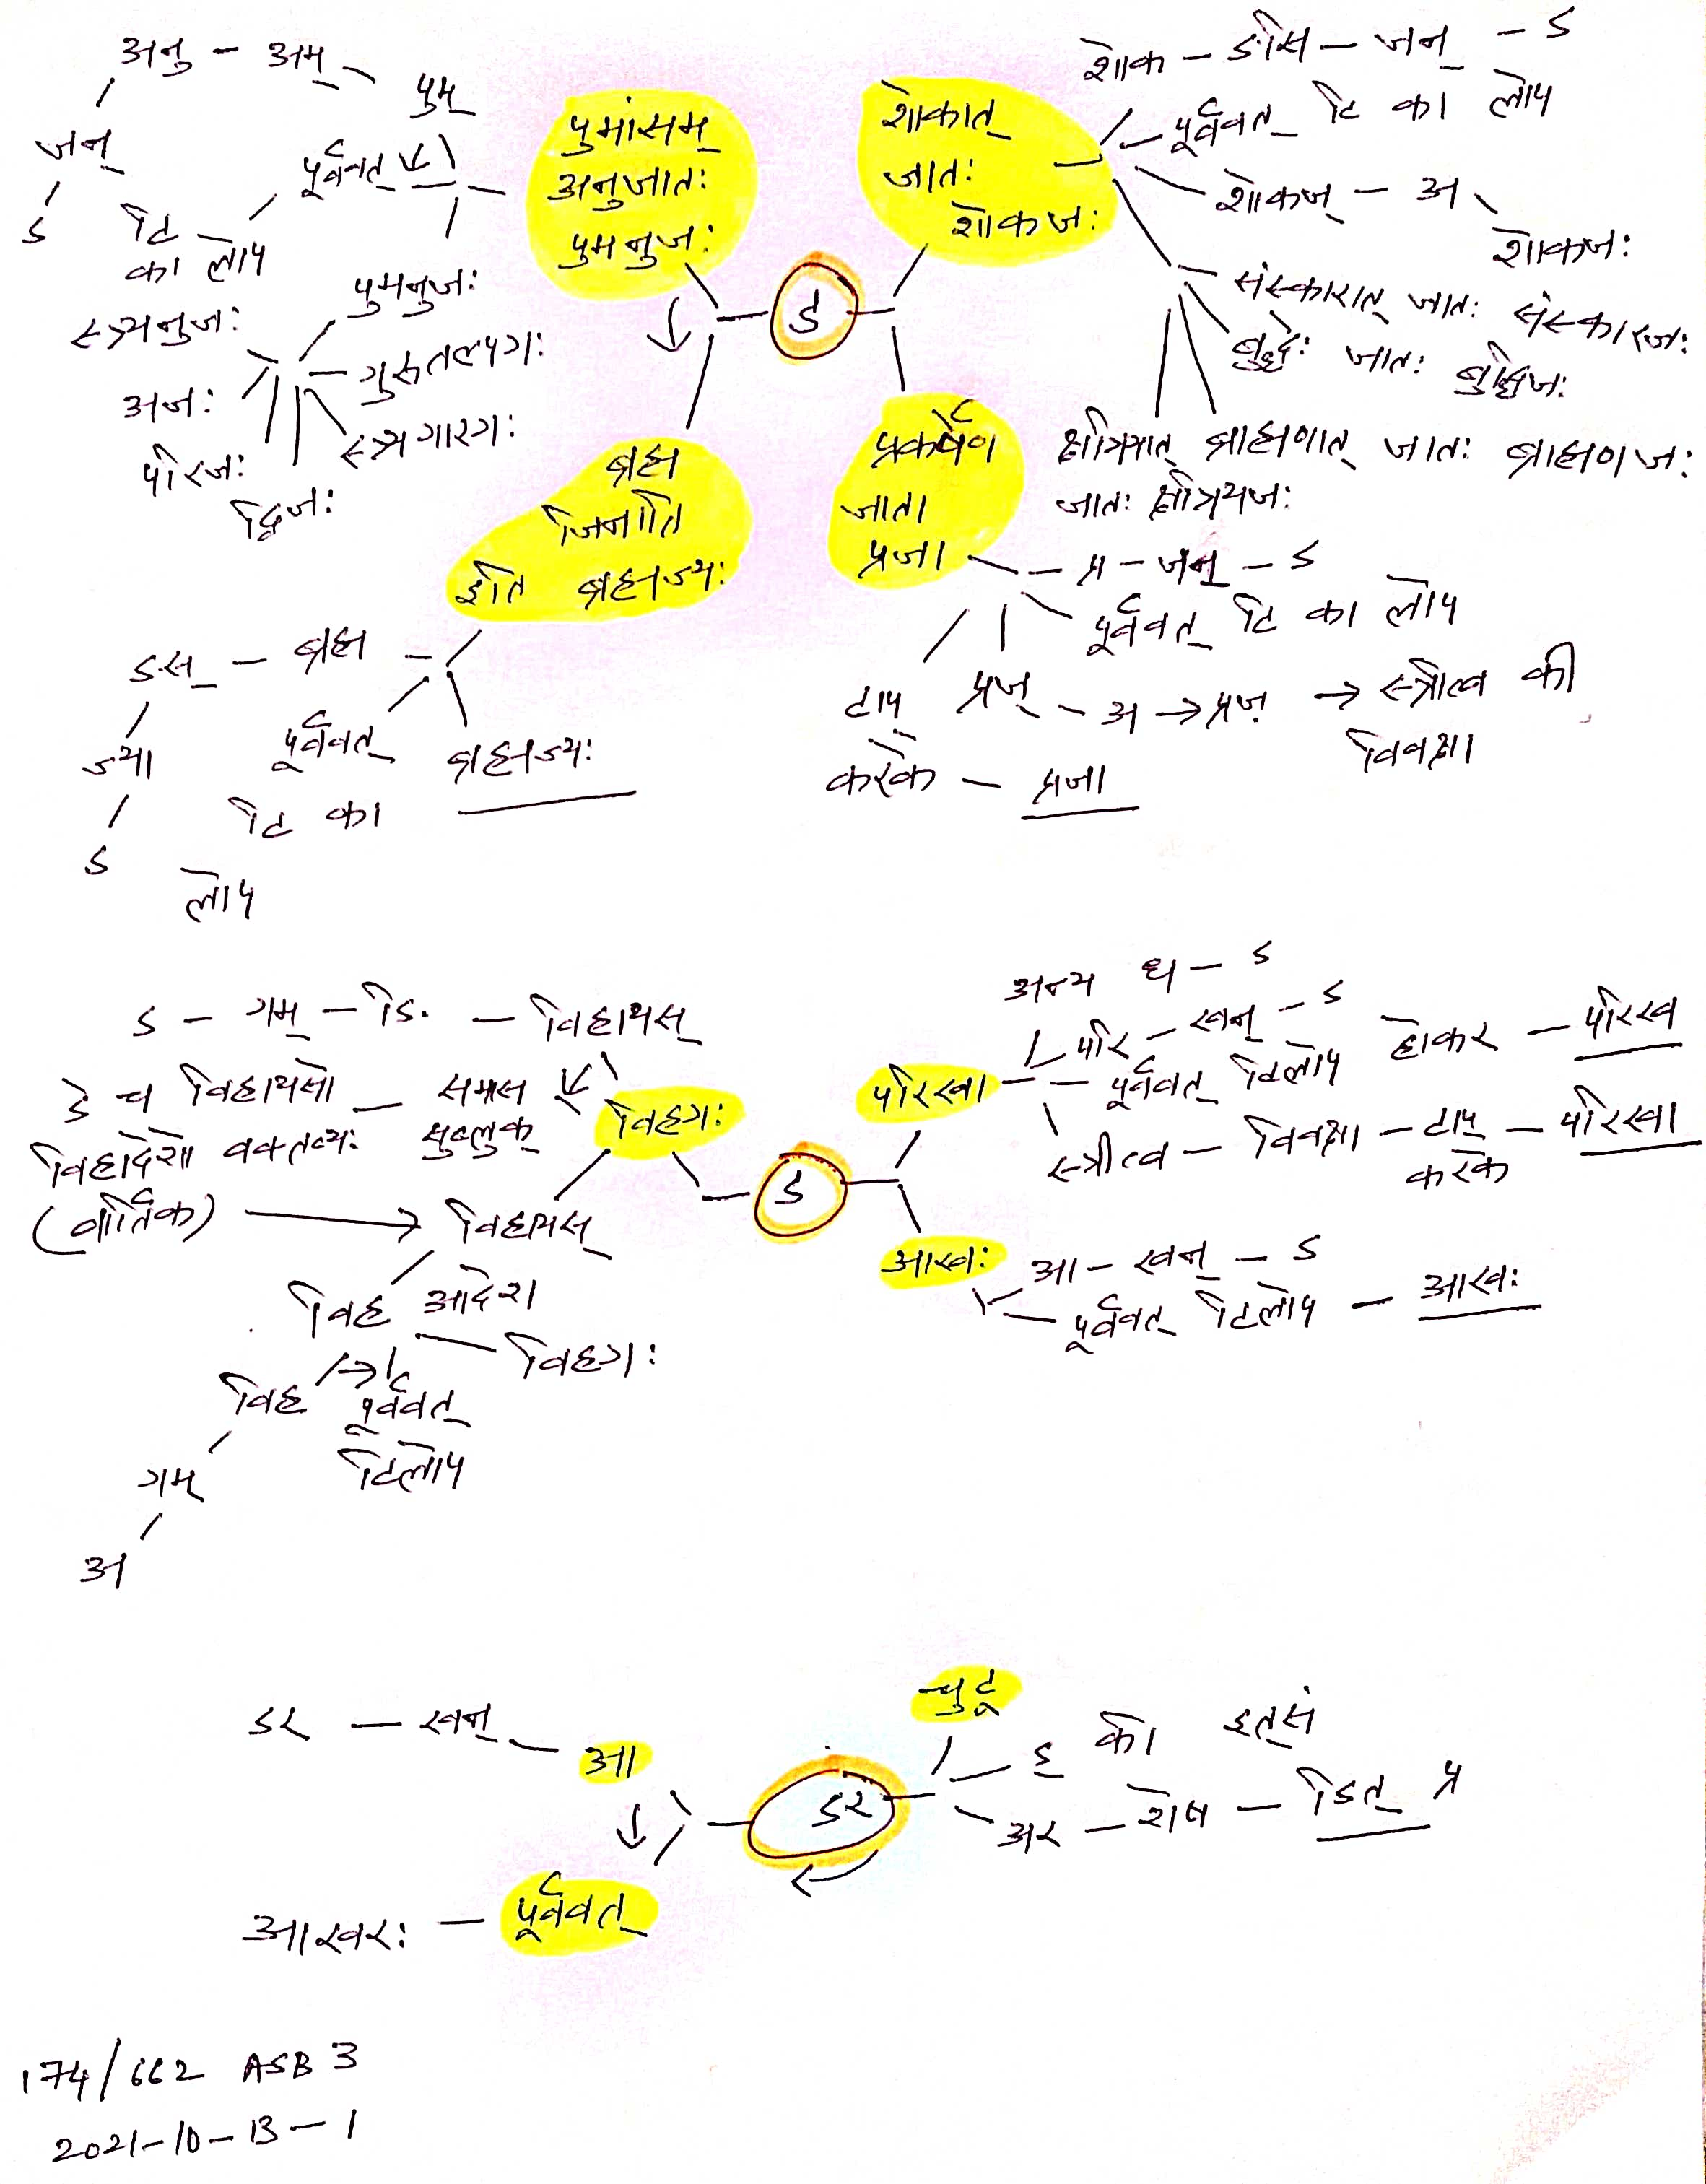 अनु - अम् - पुम्
जन्
ड
पूर्ववत्
टि
का लोप
पुमांसम्
अनुजातः
पुमनुजः
स्त्र्यनुजः
पुमनुजः
अजः
गुरुतल्पगः
परिजः
स्त्र्यगारगः
द्विजः
ड
शोकात्
जातः
शोकजः
शोक - ङसि - जन् - ड
पूर्ववत् टि का लोप
शोकज् - अ
शोकजः
संस्कारात् जातः संस्कारजः
बुद्धेः जातः बुद्धिजः
क्षत्रियात् ब्राह्मणात् जातः ब्राह्मणजः
जातः क्षत्रियजः
ब्रह्म
जिनाति
इति ब्रह्मज्यः
ङस् - ब्रह्म
ज्या
ड
पूर्ववत्
टि का
लोप
ब्रह्मज्यः
प्रकर्षेण
जाता
प्रजा
प्र - जन् - ड
पूर्ववत् टि का लोप
प्रज् - अ → प्रज → स्त्रीत्व की
विवक्षा
टाप्
करके - प्रजा
ड - गम् - ङि - विहायस्
डे च विहायसो - समास
विहादेशो वक्तव्यः सुब्लुक्
(वार्तिक) → विहायस्
विह आदेश
विहगः
विह पूर्ववत्
टिलोप
गम्
अ
विहगः
ड
परिखा
अन्य ध - ड
परि - खन् - ड
पूर्ववत् टिलोप होकर - परिख
स्त्रीत्व - विवक्षा - टाप् - परिखा
करके
आखः
आ - खन् - ड
पूर्ववत् टिलोप - आखः
डर - खन् - आ
डर
चुटू
ड् को इत्सं
अर - शेष - डित् प्र
आखरः - पूर्ववत्
174/662 ASB 3
2021-10-13-1